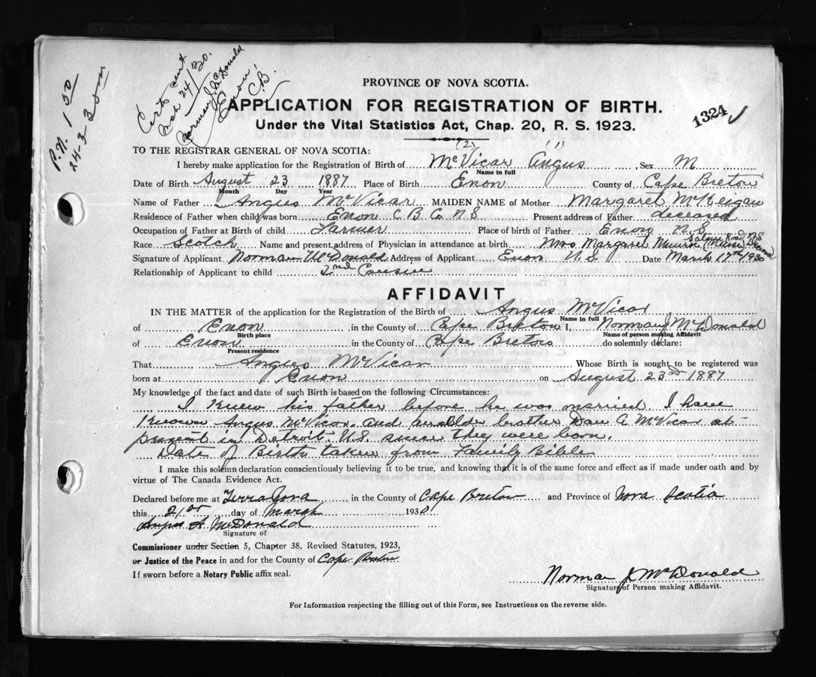 P.N. 1 50
24-3-30
Cert sent
24/30.
Norman J. McDonald
Enon,
C.B.
PROVINCE OF NOVA SCOTIA.
APPLICATION FOR REGISTRATION OF BIRTH.
1324
Under the Vital Statistics Act, Chap. 20, R. S. 1923.
TO THE REGISTRAR GENERAL OF NOVA SCOTIA:
(2) (1)
I hereby make application for the Registration of Birth of McVicar Angus Sex M
Name in full
Date of Birth August 23 1887 Place of Birth Enon County of Cape Breton
Month Day Year
Name of Father Angus McVicar MAIDEN NAME of Mother Margaret McKeegan
Residence of Father when child was born Enon C. B. Co N.S Present address of Father deceased
Occupation of Father at Birth of child Farmer Place of birth of Father Enon N.S
Race Scotch Name and present address of Physician in attendance at birth Mrs Margaret Munroe
Signature of Applicant Norman McDonald Address of Applicant Enon N.S Date March 17th 1930
Relationship of Applicant to child 2nd Cousin
AFFIDAVIT
IN THE MATTER of the application for the Registration of the Birth of Angus McVicar
Name in full
of Enon in the County of Cape Breton I, Norman J McDonald
Birth place Name of person making Affidavit
of Enon in the County of Cape Breton do solemnly declare:
Present residence
That Angus McVicar Whose Birth is sought to be registered was
born at Enon on August 23rd 1887
My knowledge of the fact and date of such Birth is based on the following Circumstances:
I knew his father before he was married I have
known Angus McVicar and an older brother Dan A McVicar at
present in Detroit U.S. since they were born.
Date of Birth taken from Family Bible
I make this solemn declaration conscientiously believing it to be true, and knowing that it is of the same force and effect as if made under oath and by
virtue of The Canada Evidence Act.
Declared before me at Terra Nova in the County of Cape Breton and Province of Nova Scotia
this 21st day of March 1930
Angus A McDonald
Signature of
Commissioner under Section 5, Chapter 38, Revised Statutes, 1923,
or Justice of the Peace in and for the County of Cape Breton
If sworn before a Notary Public affix seal.
Norman J McDonald
Signature of Person making Affidavit.
For Information respecting the filling out of this Form, see Instructions on the reverse side.